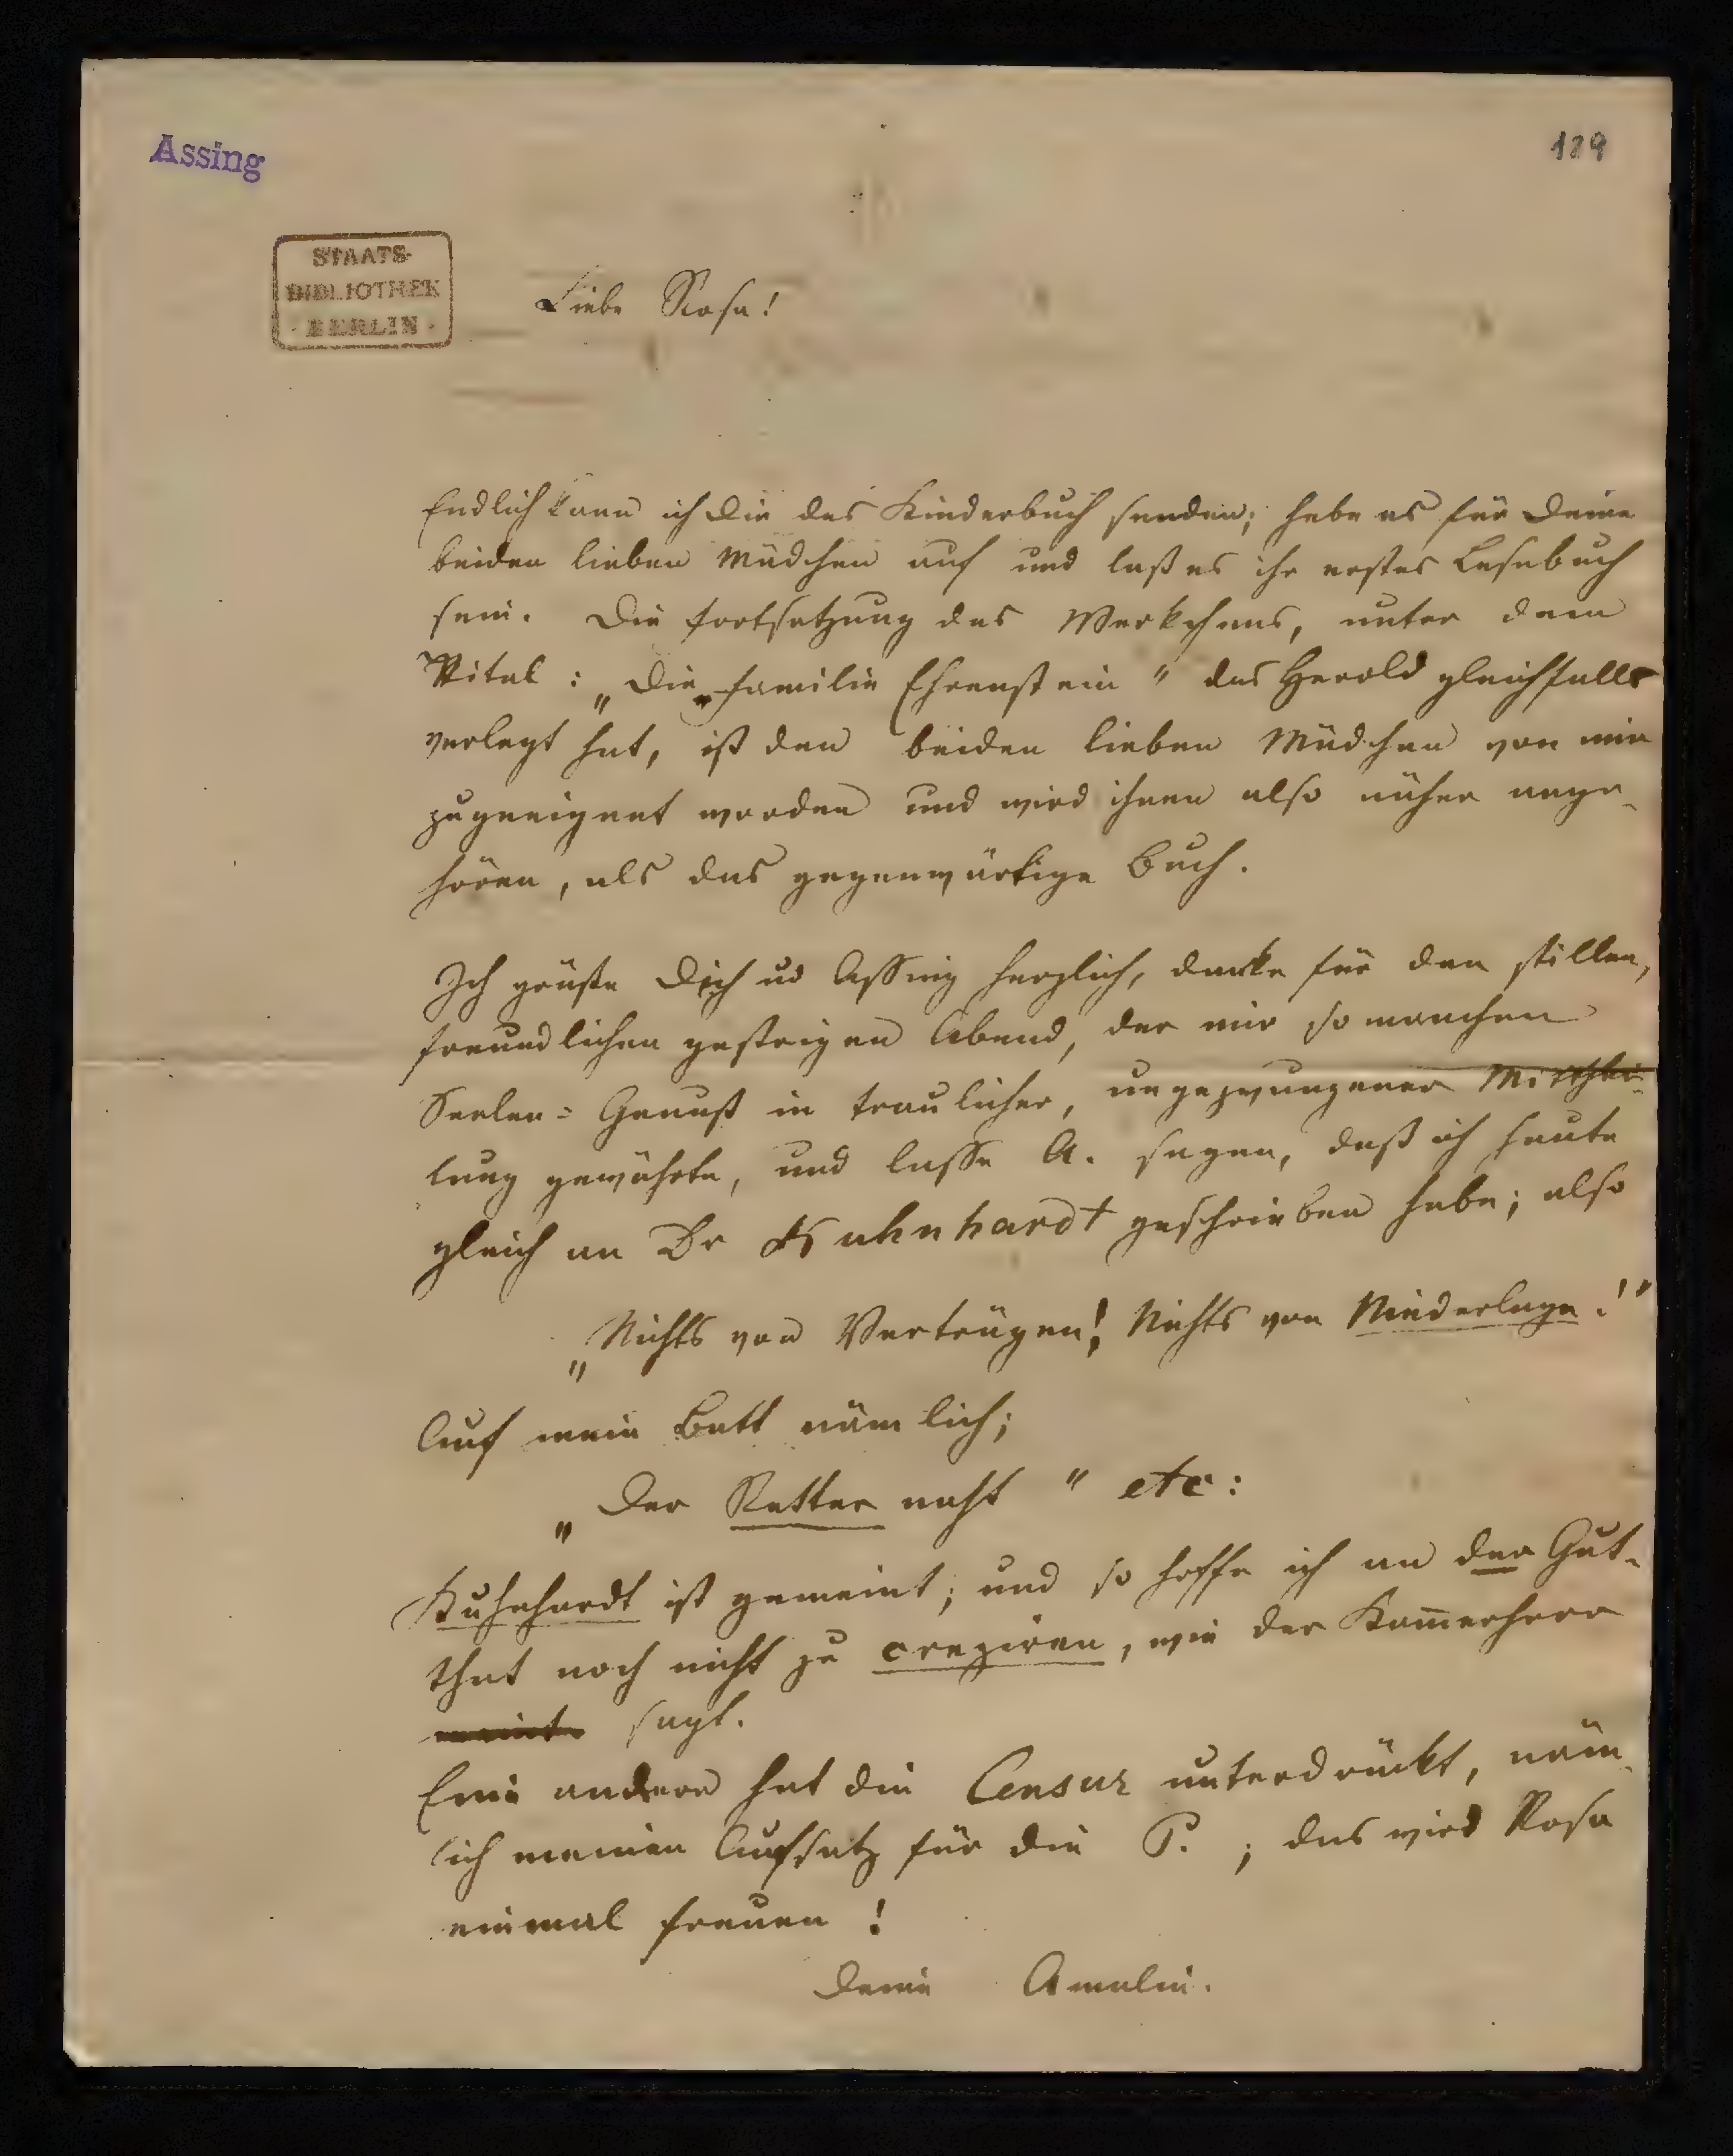 Assing
129
STAATS-
BIBLIOTHEK
· BERLIN ·
Liebe Rosa!
Endlich kann ich Dir das Kinderbuch senden; hebe es für Deine
beiden lieben Mädchen auf und laß es ihr erstes Lesebuch
sein. Die Fortsetzung des Werkchens, unter dem
Titel: „Die Familie Ehrenstein" das Herold gleichfalls
verlegt hat, ist den beiden lieben Mädchen von mir
zugeeignet worden und wird ihnen also näher ange-
hören, als das gegenwärtige Buch.
Ich grüße Dich ud Assing herzlich, danke für den stillen,
freundlichen gestrigen Abend, der mir so manchen
Seelen-Genuß in traulicher, ungezwungener Mitthei-
lung gewährte, und lasse A. sagen, daß ich heute
gleich an Dr Kuhnhardt geschrieben habe; also
„Nichts von Verträgen! Nichts von Niederlage!"
Auf mein Bett nämlich;
„Der Retter naht" etc:
Kuhnhardt ist gemeint; und so hoffe ich an der Gut-
that noch nicht zu creziren, wie der Kam̅erherr
meint sagt.
Eine andere hat die Censur unterdrückt, näm-
lich meinen Aufsatz für die P. ; das wird Rosa
einmal freuen!
Deine Amalie.